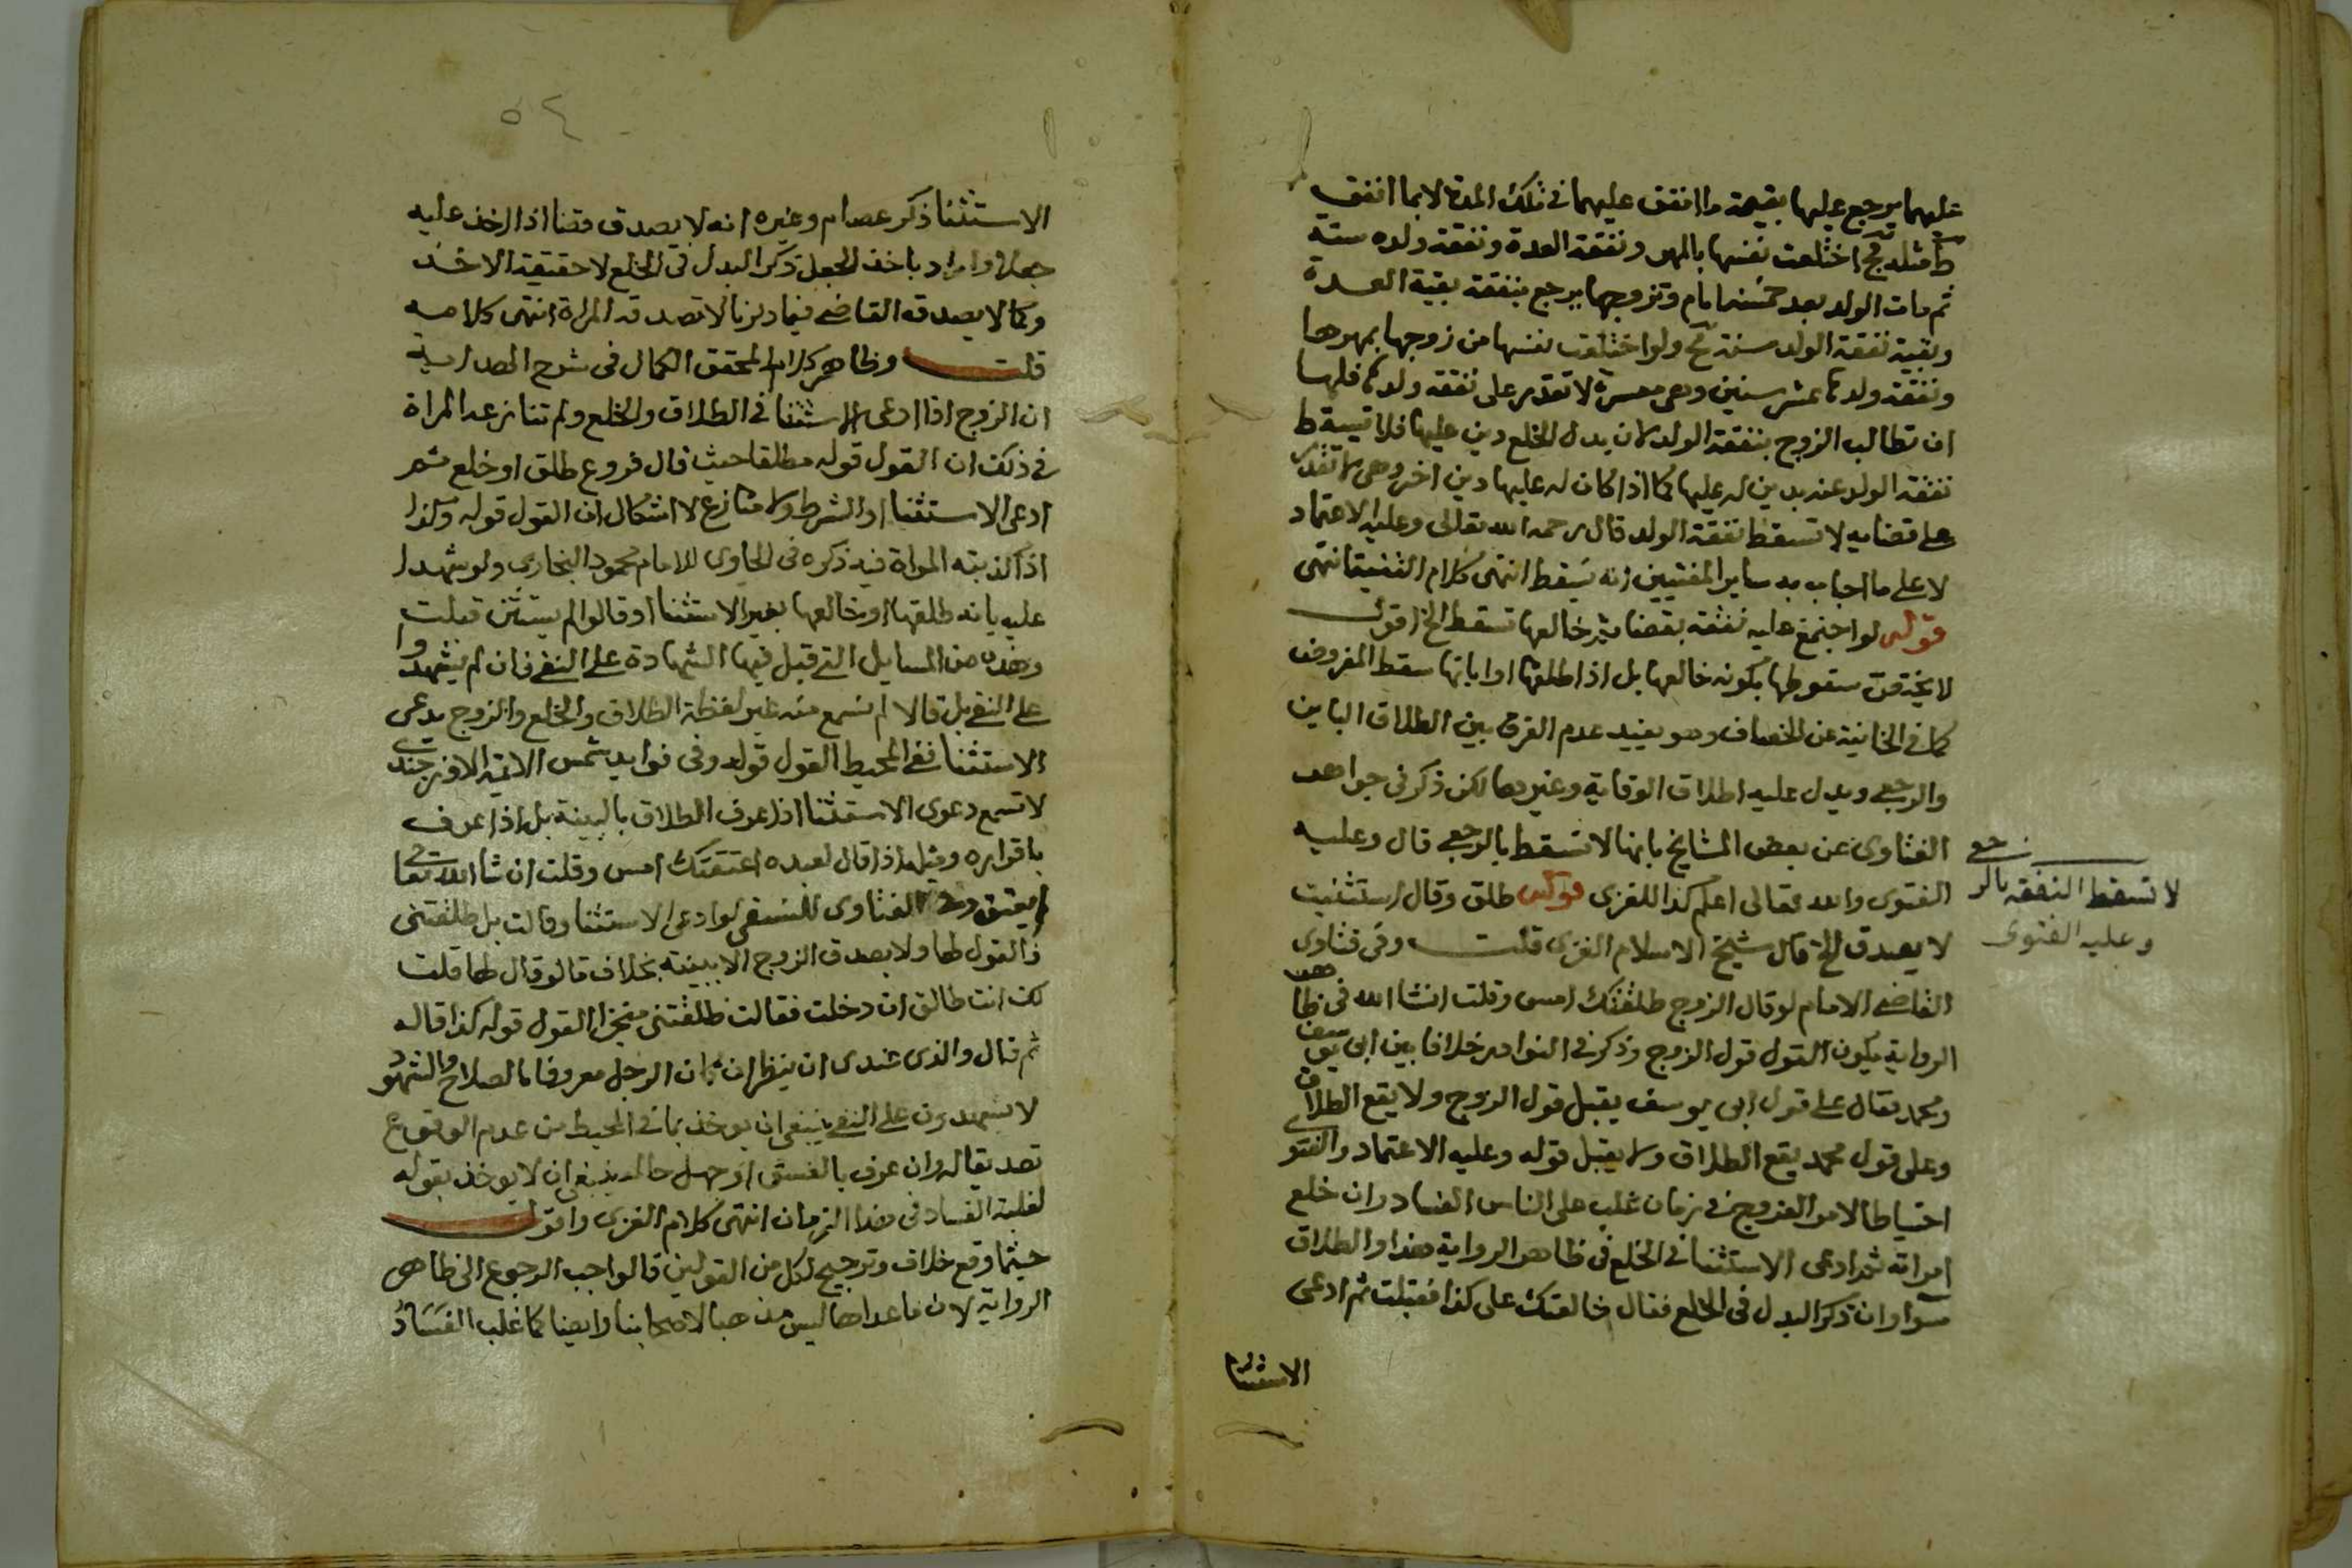 عليهما يرجع عليها بقيمة ما انفق عليهما في تلك المدة لا بما انفق
ط مثله قج اختلعت نفسها بالمهر ونفقة العدة ونفقة ولده سنة
ثم مات الولد بعد خمسة ايام وتزوجها يرجع بنفقة بقية العدة
وبقية نفقة الولد سنة مح ولو اختلعت نفسها من زوجها بمهرها
ونفقة ولدها عشر سنين وهي معسرة لا تقدر على نفقة ولدها فلها
ان تطالب الزوج بنفقة الولد لان بدل الخلع دين عليها فلا تسقط
نفقة الولد عنه بدين له عليها كما اذا كان له عليها دين اخر وهي لا تقدر
على قضايه لا تسقط نفقة الولد قال رحمه الله تعالى وعليه الاعتماد
لا على ما اجاب به ساير المفتيين انه يسقط انتهى كلام القنية انتهى
قوله لو اجتمع عليه نفقة بقضا ثم خالعها تسقط الخ اقول
لا يختص سقوطها بكونه خالعها بل اذا طلقها او ابانها سقط المفروض
كما في الخانية عن الخصاف وهو يفيد عدم الفرق بين الطلاق الباين
والرجعي ويدل عليه اطلاق الوقاية وغيرها لكن ذكر في جواهر
الفتاوى عن بعض المشايخ بانها لا تسقط بالرجعي قال وعليه
الفتوى والله تعالى اعلم كذا للغزى قوله طلق وقال استثنيت
لا يصدق الخ قال شيخ الاسلام الغزى قلت وفي فتاوى
القاضي الامام لو قال الزوج طلقتك امس وقلت انشا الله في ظاهر
الرواية يكون القول قول الزوج وذكر في النوادر خلافا بين ابي يوسف
ومحمد فقال على قول ابي يوسف يقبل قول الزوج ولا يقع الطلاق
وعلى قول محمد يقع الطلاق ولا يقبل قوله وعليه الاعتماد والفتوى
احتياطا لامر الفروج في زمان غلب على الناس الفساد وان خلع
امراته ثم ادعى الاستثنا في الخلع في ظاهر الرواية هذا والطلاق
سوا وان ذكر البدل في الخلع فقال خالعتك على كذا فقبلت ثم ادعى
الاستثنا
لا تسقط النفقة بالرجعي
وعليه الفتوى
٥٤
الاستثنا ذكر عصام وغيره انه لا يصدق قضا اذا اخذ عليه
جعلا واراد باخذ الجعل ذكر البدل في الخلع لا حقيقة الاخذ
وكما لا يصدقه القاضي فيما ذكرنا لا تصدقه المراة انتهى كلامه
قلت وظاهر كلام المحقق الكمال في شرح الهداية
ان الزوج اذا ادعى الاستثنا في الطلاق والخلع ولم تنازعه المراة
في ذلك ان القول قوله مطلقا حيث قال فروع طلق او خلع ثم
ادعى الاستثنا او الشرط ولا منازع لا اشكال ان القول قوله وكذا
اذا كذبته المراة فيه ذكره في الحاوى للامام محمود البخارى ولو شهدا
عليه بانه طلقها او خالعها بغير الاستثنا او قالوا لم يستثن قبلت
وهذه من المسايل التي قبل فيها الشهادة على النفي فان لم يشهدوا
على النفي بل قالا لم نسمع منه غير لفظة الطلاق والخلع والزوج يدعى
الاستثنا ففي المحيط القول قوله وفي فوايد شمس الايمة الاوزجندى
لا تسمع دعوى الاستثنا اذا عرف الطلاق بالبينة بل اذا عرف
باقراره ومثله اذا قال لعبده اعتقتك امس وقلت ان شا الله تعالى
لم يعتق وفي الفتاوى للنسفي لو ادعى الاستثنا وقالت بل طلقتني
فالقول لها ولا يصدق الزوج الا ببينة بخلاف ما لو قال لها قلت
لك انت طالق ان دخلت فقالت طلقتني منجزا القول قوله كذا قاله
ثم قال والذى عندى ان ينظر ان كان الرجل معروفا بالصلاح والشهود
لا يشهدون على النفي ينبغي ان يوخذ بما في المحيط من عدم الوقوع
تصديقا له وان عرف بالفسق او جهل حاله ينبغي ان لا يوخذ بقوله
لغلبة الفساد في هذا الزمان انتهى كلام الغزى واقول
حيثما وقع خلاف وترجيح لكل من القولين فالواجب الرجوع الى ظاهر
الرواية لان ما عداها ليس مذهبا لاصحابنا وايضا كما غلب الفساد